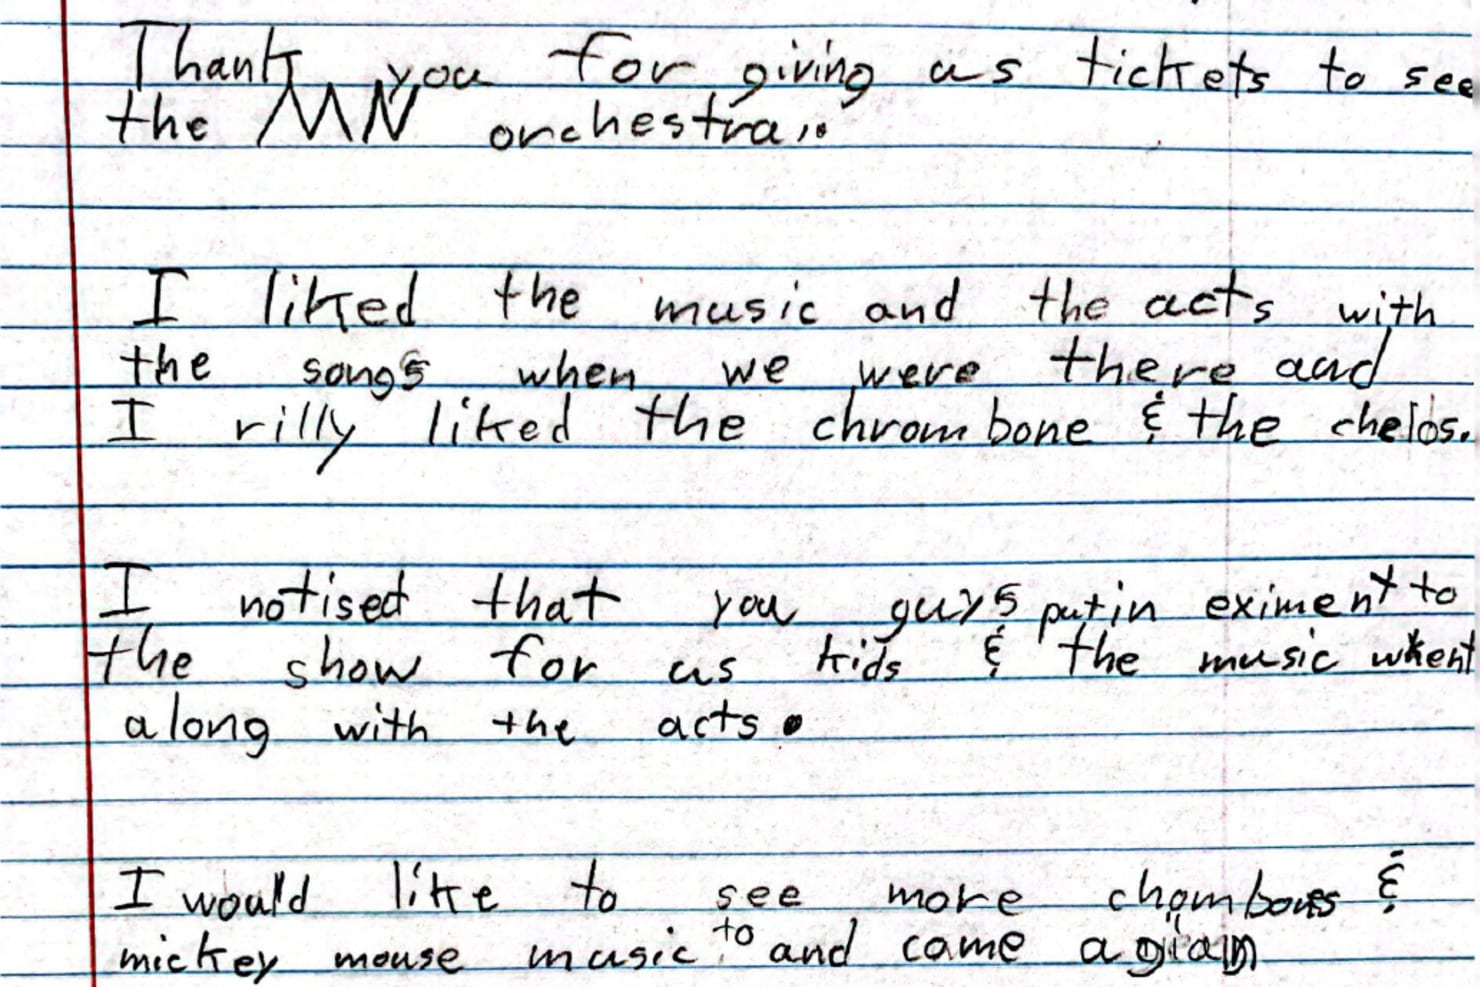 Thank you for giving us tickets to see
the MN orchestra..
I liked the music and the acts with
the songs when we were there and
I rilly liked the chrombone & the chellos.
I notised that you guys put in eximent to
the show for us kids & the music whent
along with the acts.
I would like to see more chombones &
mickey mouse music to and come agian